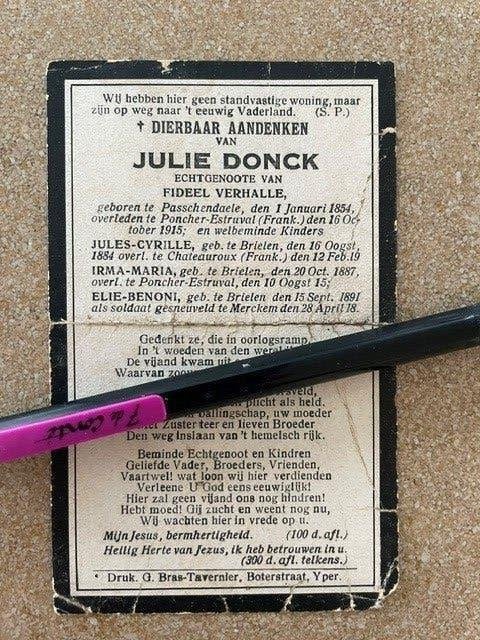 Wij hebben hier geen standvastige woning, maar
zijn op weg naar 't eeuwig Vaderland. (S. P.)
† DIERBAAR AANDENKEN
VAN
JULIE DONCK
ECHTGENOOTE VAN
FIDEEL VERHALLE,
geboren te Passchendaele, den 1 Januari 1854,
overleden te Poncher-Estruval (Frank.) den 16 Oc-
tober 1915; en welbeminde Kinders
JULES-CYRILLE, geb. te Brielen, den 16 Oogst,
1884 overl. te Chateauroux (Frank.) den 12 Feb.19
IRMA-MARIA, geb. te Brielen, den 20 Oct. 1887,
overl. te Poncher-Estruval, den 10 Oogst 15;
ELIE-BENONI, geb. te Brielen den 15 Sept. 1891
als soldaat gesneuveld te Merckem den 28 April 18.
Gedenkt ze, die in oorlogsramp
In 't woeden van den
De vijand kwam uit
Waarvan
plicht als held.
ballingschap, uw moeder
Zuster teer en lieven Broeder
Den weg inslaan van 't hemelsch rijk.
Beminde Echtgenoot en Kindren
Geliefde Vader, Broeders, Vrienden,
Vaartwel! wat loon wij hier verdienden
Verleene U God eens eeuwiglijk!
Hier zal geen vijand ons nog hindren!
Hebt moed! Gij zucht en weent nog nu,
Wij wachten hier in vrede op u.
Mijn Jesus, bermhertigheid. (100 d. afl.)
Heilig Herte van Jezus, ik heb betrouwen in u.
(300 d. afl. telkens.)
Druk. G. Bras-Tavernier, Boterstraat, Yper.